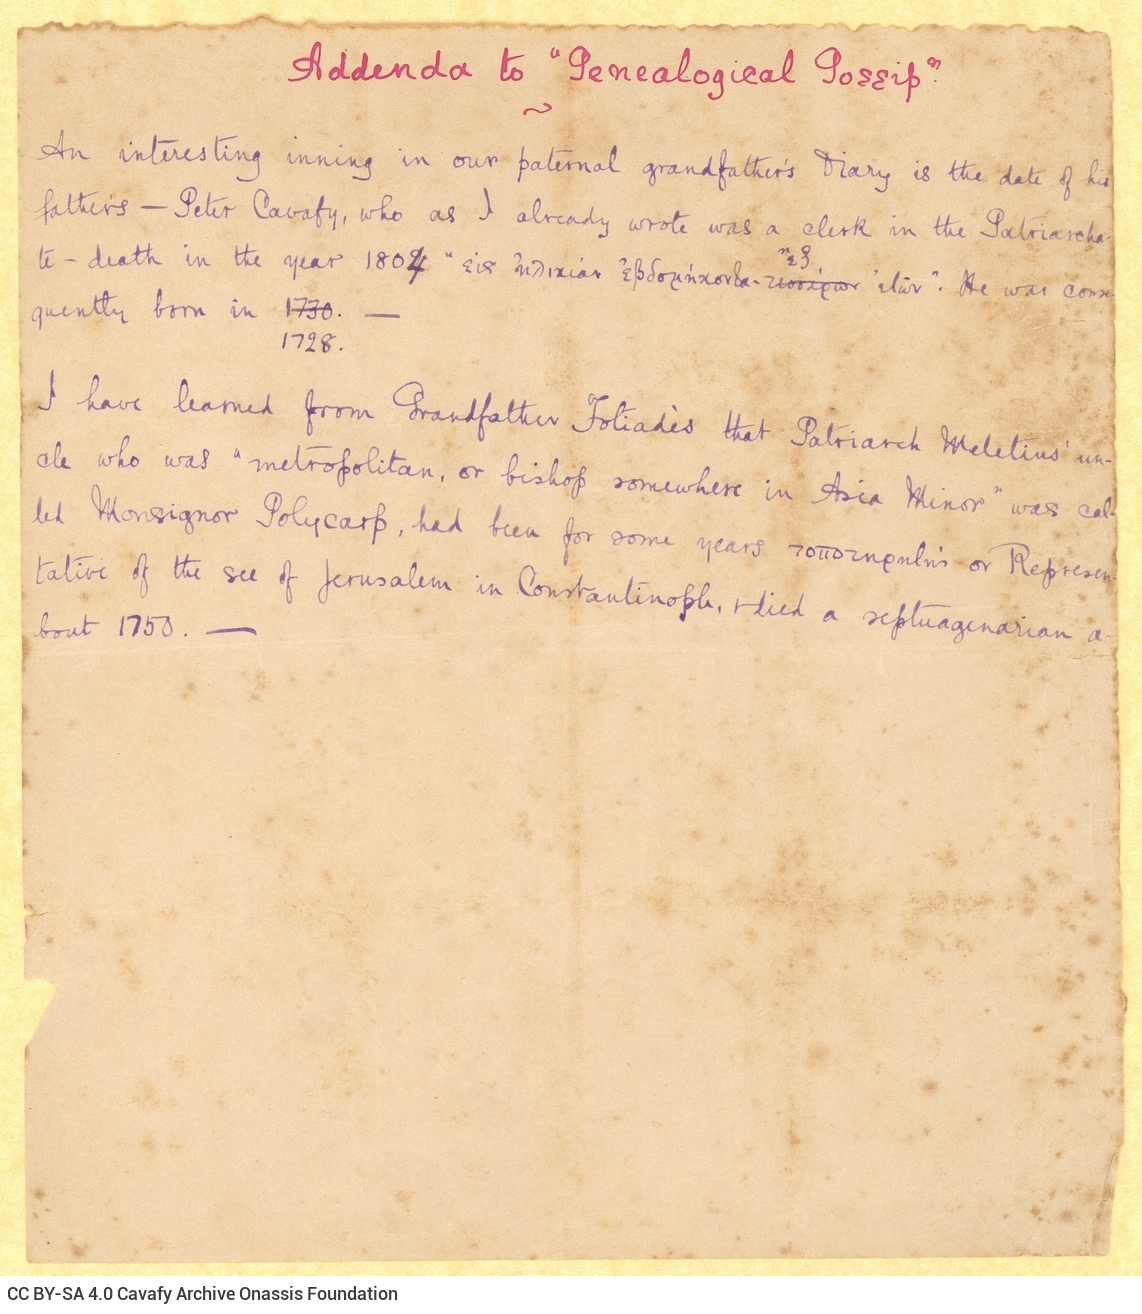 Addenda to "Genealogical Gossip".
An interesting inning in our paternal grandfather's Diary is the date of his
father's — Peter Cavafy, who as I already wrote was a clerk in the Patriarcha-
ἕξ
te – death in the year 1804 "εἰς ἡλικίαν ἑβδομήκοντα-τεσσάρων ἐτῶν". He was conse-
quently born in 1730. —
1728.
I have learned from Grandfather Fotiadès that Patriarch Meletius' un-
cle who was "metropolitan, or bishop somewhere in Asia Minor" was cal-
led Monsignor Polycarp, had been for some years τοποτηρητὴς or Represen-
tative of the see of Jerusalem in Constantinople, & died a septuagenarian a-
bout 1750. —
CC BY-SA 4.0 Cavafy Archive Onassis Foundation